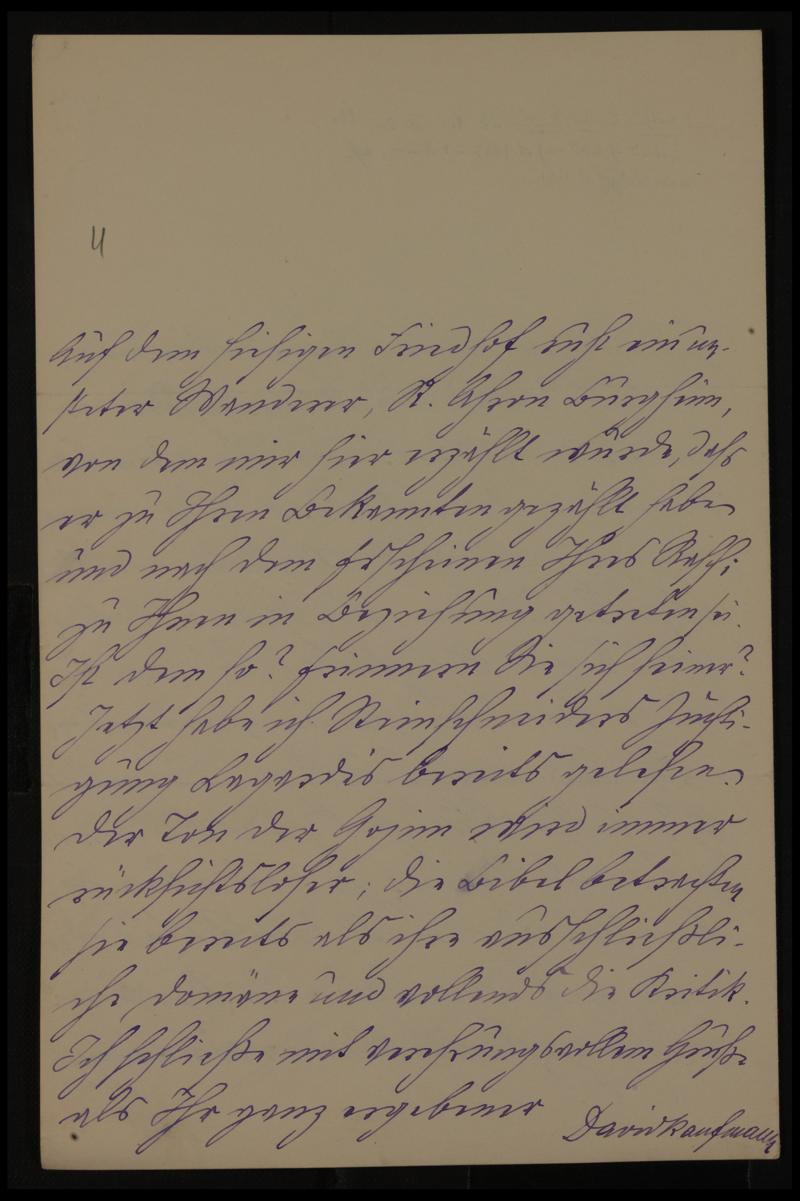 4
Auf dem hiesigen Friedhof ruht ein un-
steter Wanderer, R. Ahron Burgheim,
von dem mir hier erzählt wurde, daß
er zu Ihren Bekannten gezählt habe
und nach dem Erscheinen Ihres Raschi
zu Ihnen in Beziehung getreten sei.
Ist dem so? Erinnern Sie sich seiner?
Jetzt habe ich Steinschneiders Züchti-
gung Lagarde's bereits gelesen.
Der Ton der Gojim wird immer
rücksichtsloser; die Bibel betrachten
sie bereits als ihre ausschließli-
che Domäne und vollends die Kritik.
Ich schließe mit verehrungsvollem Gruße
als Ihr ganz ergebener David Kaufmann